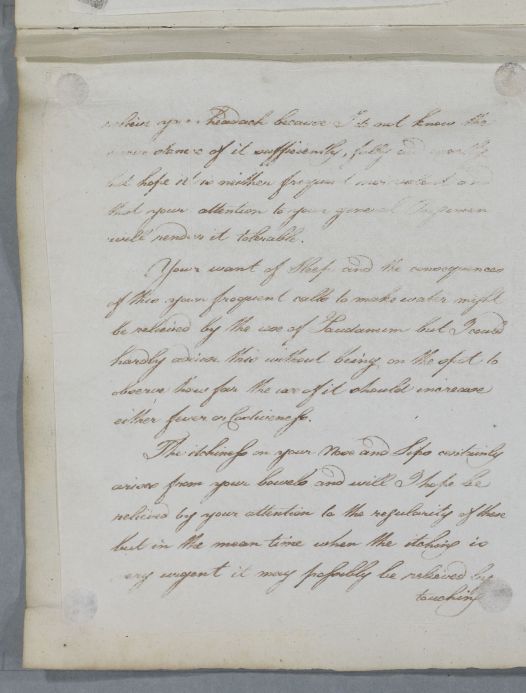 relieve your headach because I do not know the
of it sufficiently, fully and
but hope it is neither frequent nor violent and
that your attention to your general
will render it tolerable.
Your want of Sleep and the consequences
of this your frequent calls to make water might
be relieved by the use of Laudanum but I could
hardly advise this without being on the spot to
observe how far the use of it should increase
either fever or Costiveness.
The itchiness on your Nose and Lips certainly
arises from your bowels and will I hope be
relieved by your attention to the regularity of these
but in the mean time when the itching is
very urgent it may possibly be relieved by
touching